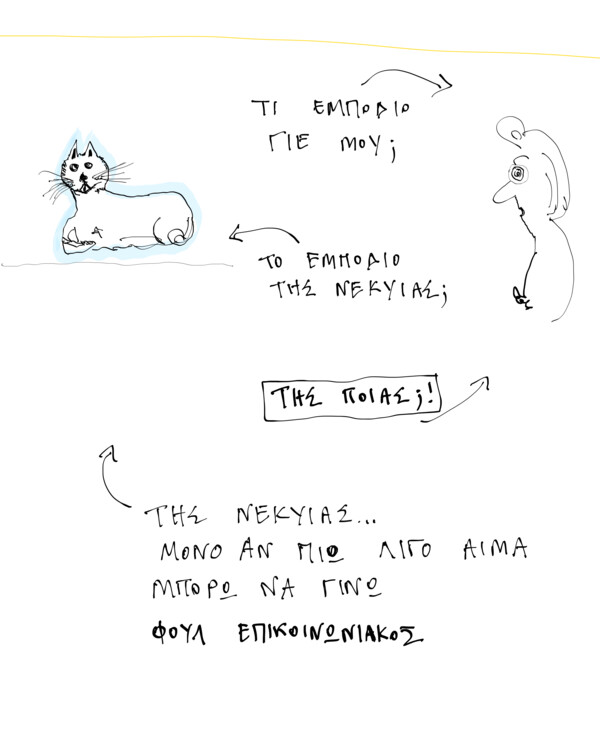 ΤΙ ΕΜΠΟΔΙΟ
ΓΙΕ ΜΟΥ;
ΤΟ ΕΜΠΟΔΙΟ
ΤΗΣ ΝΕΚΥΙΑΣ;
ΤΗΣ ΠΟΙΑΣ;!
ΤΗΣ ΝΕΚΥΙΑΣ...
ΜΟΝΟ ΑΝ ΠΙΩ ΛΙΓΟ ΑΙΜΑ
ΜΠΟΡΩ ΝΑ ΓΙΝΩ
ΦΟΥΛ ΕΠΙΚΟΙΝΩΝΙΑΚΟΣ